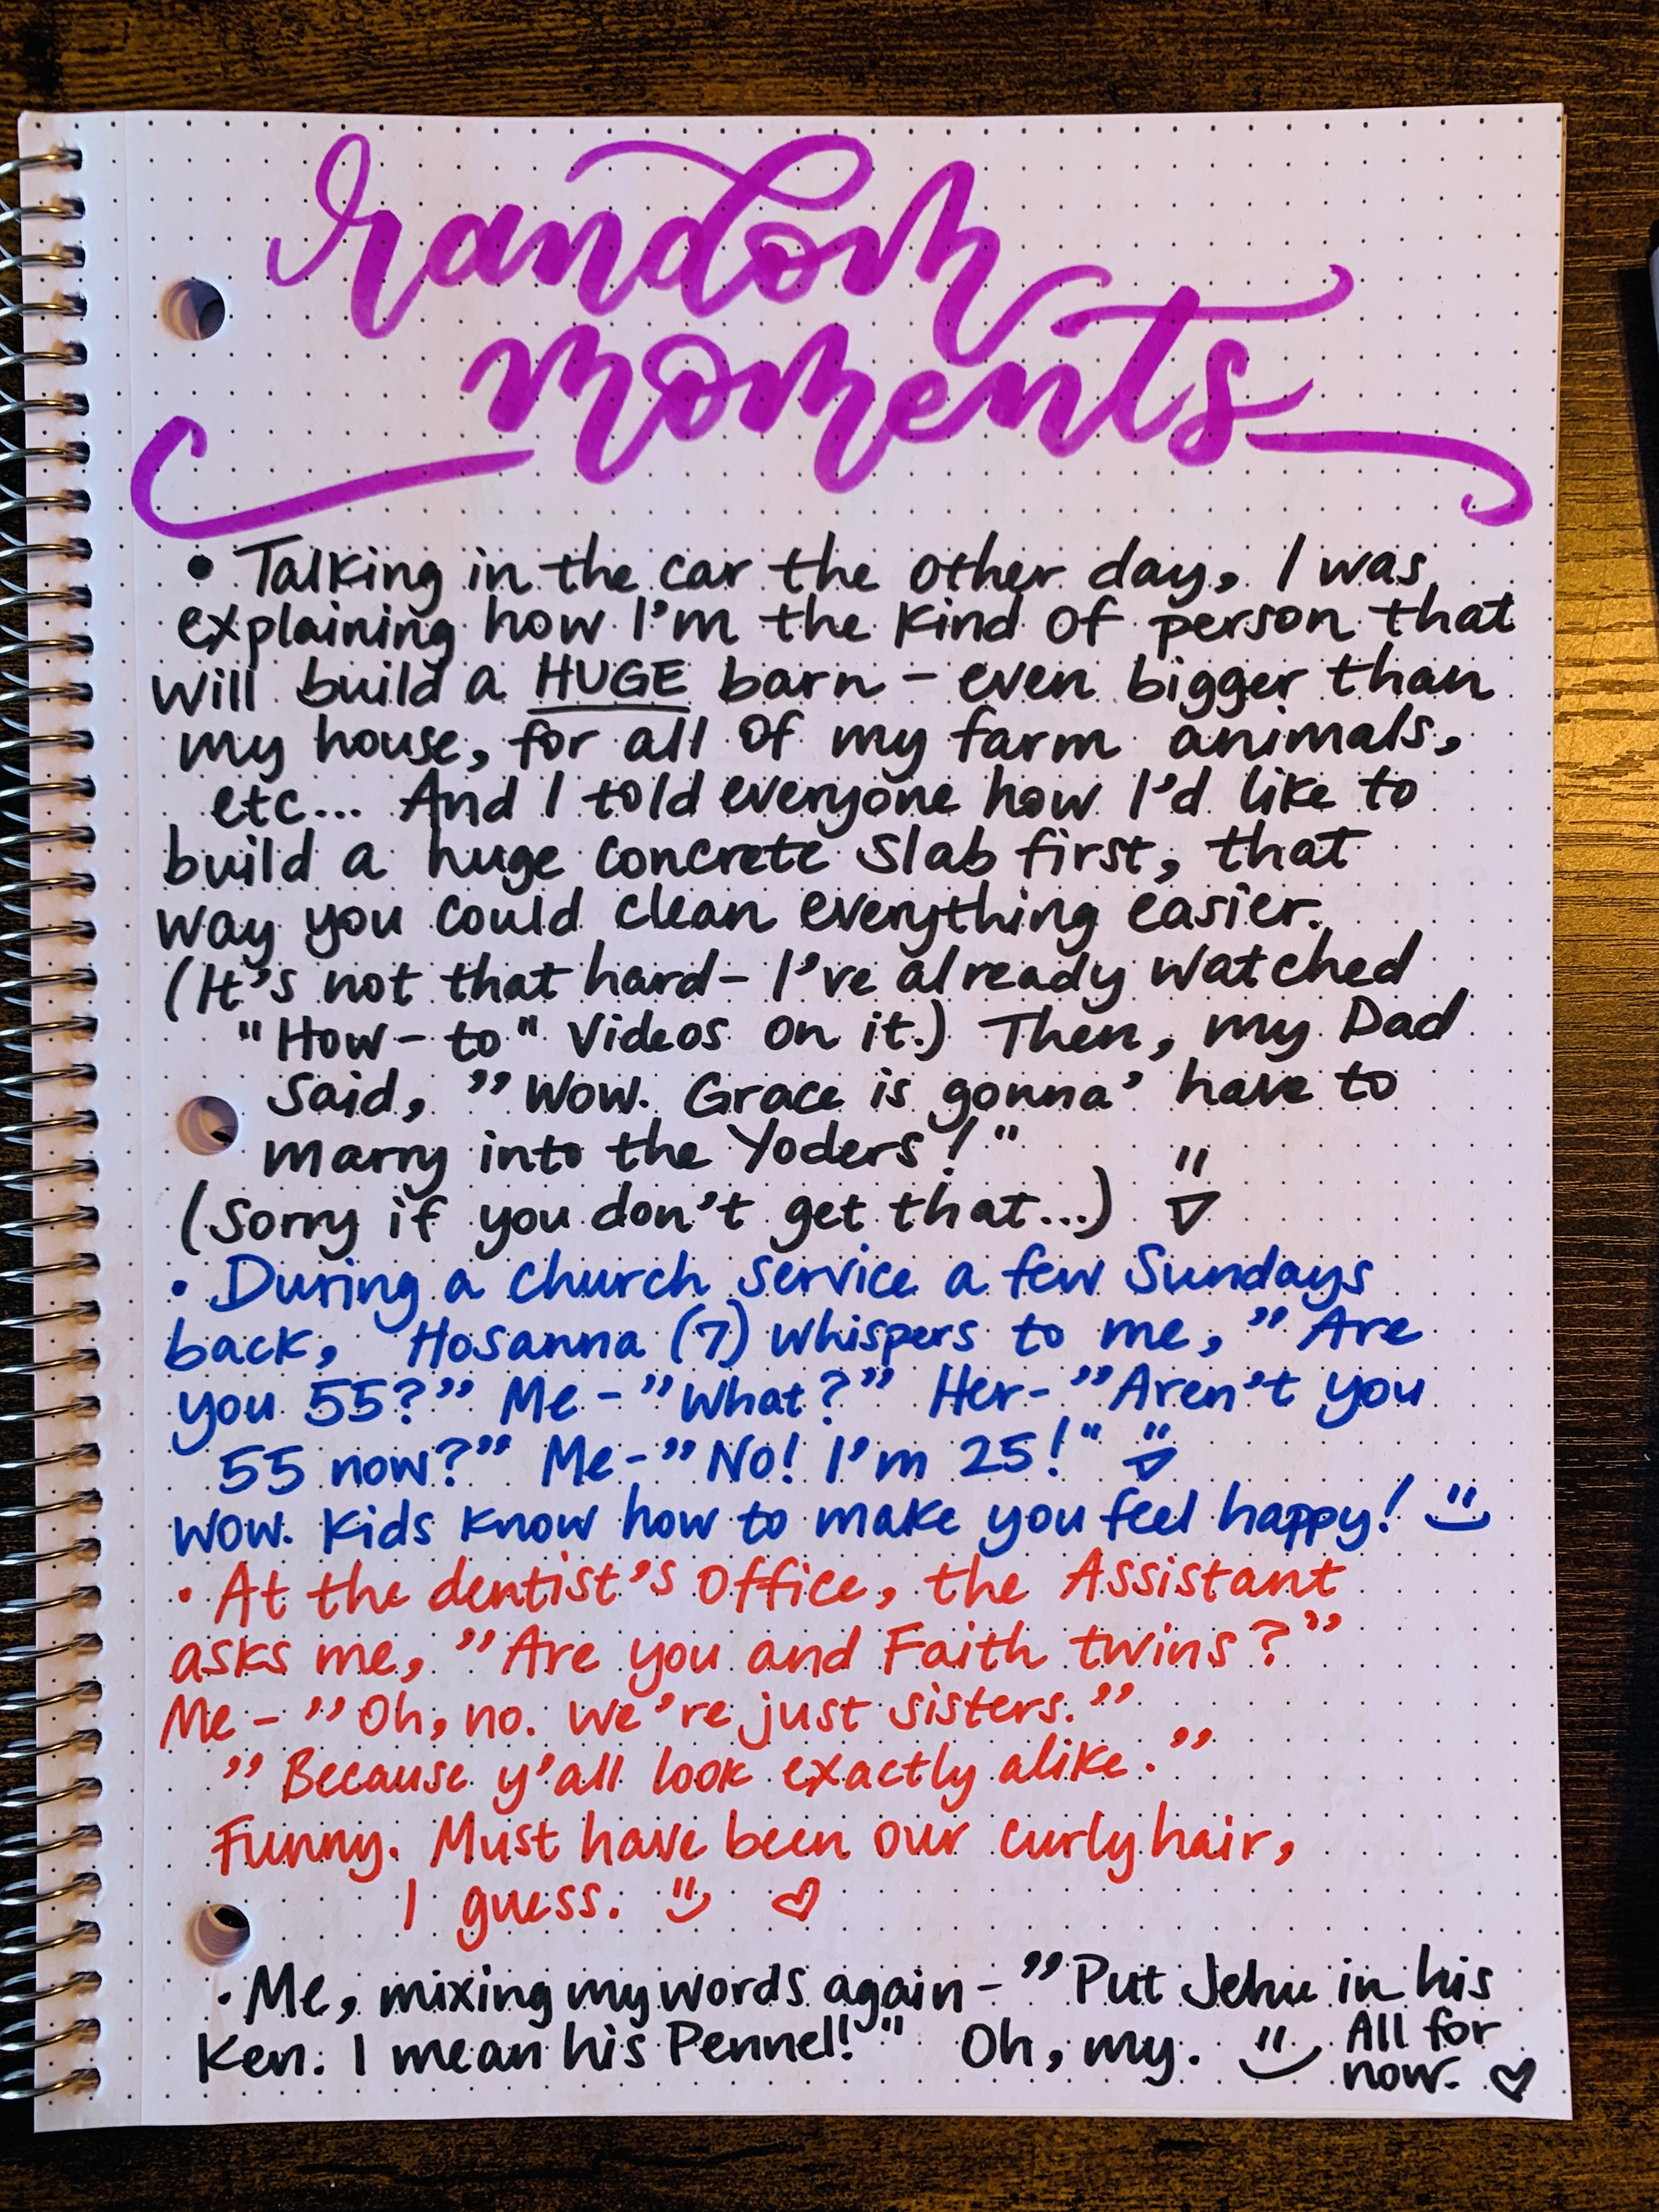 random
moments
• Talking in the car the other day, I was
explaining how I'm the kind of person that
will build a HUGE barn - even bigger than
my house, for all of my farm animals,
etc... And I told everyone how I'd like to
build a huge concrete slab first, that
way you could clean everything easier.
(It's not that hard - I've already watched
"How-to" Videos on it.) Then, my Dad
said, "Wow. Grace is gonna' have to
marry into the Yoders!"
(Sorry if you don't get that...)
• During a church service a few Sundays
back, Hosanna (7) whispers to me, "Are
you 55?" Me - "What?" Her - "Aren't you
55 now?" Me - "No! I'm 25!"
Wow. Kids know how to make you feel happy!
• At the dentist's office, the Assistant
asks me, "Are you and Faith twins?"
Me - "Oh, no. We're just sisters."
"Because y'all look exactly alike."
Funny. Must have been our curly hair,
I guess. ♡
• Me, mixing my words again - "Put Jehu in his
Ken. I mean his Pennel!" Oh, my. All for
now. ♡